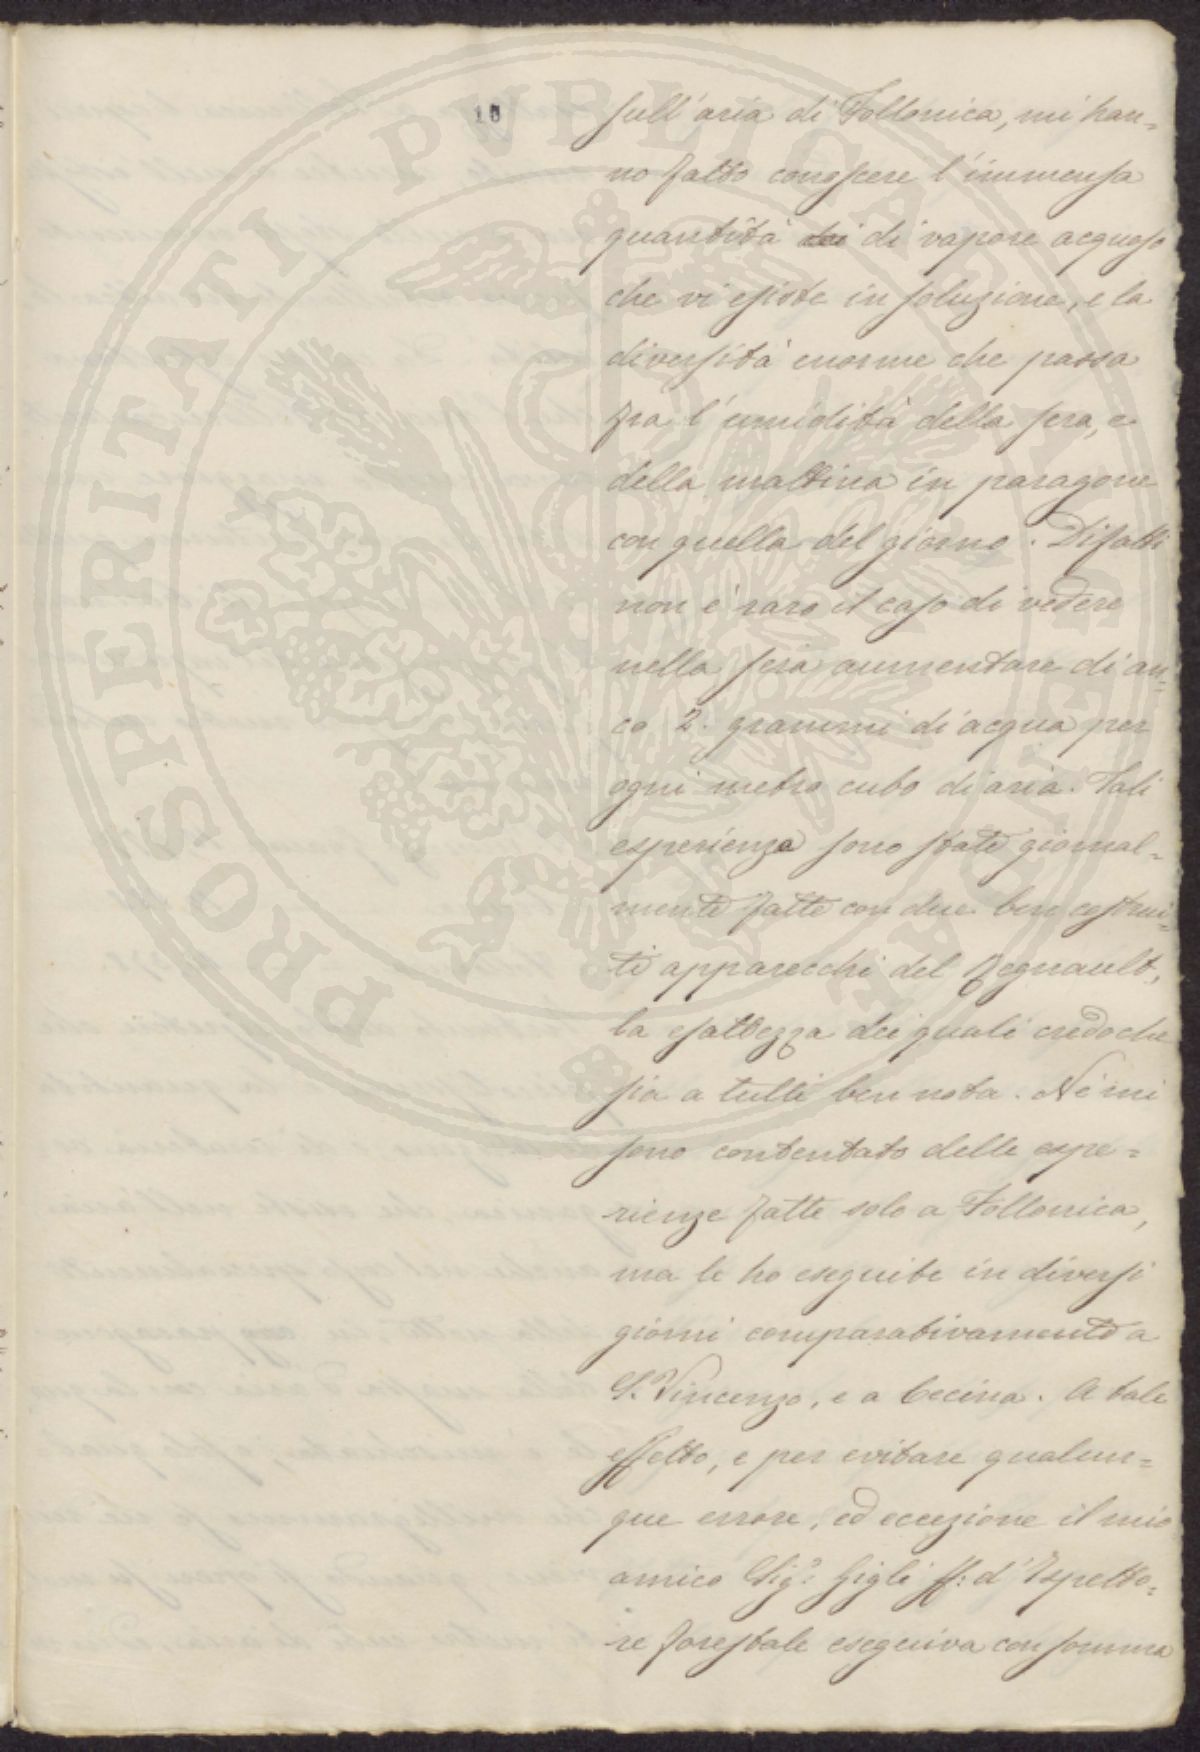 10
sull'aria di Follonica, mi han=
no fatto conoscere l'immensa
quantità dei di vapore acquoso
che vi esiste in soluzione, e la
diversità enorme che passa
fra l'umidità della sera, e
della mattina in paragone
con quella del giorno. Difatti
non è raro il caso di vedere
nella sera aumentare di an=
co 2. grammi di acqua per
ogni metro cubo di aria. Tali
esperienze sono state giornal=
mente fatte con due ben costrui=
ti apparecchi del Regnault,
la esattezza dei quali credo che
sia a tutti ben nota. Nè mi
sono contentato delle espe=
rienze fatte solo a Follonica,
ma le ho eseguite in diversi
giorni comparativamente a
S. Vincenzo, e a Cecina. A tale
effetto, e per evitare qualun=
que errore, ed eccezione il mio
amico Sig.r Gigli ff: d'Ispetto=
re forestale eseguiva con somma
PROSPERITATI PVBLICAE AVGENDAE